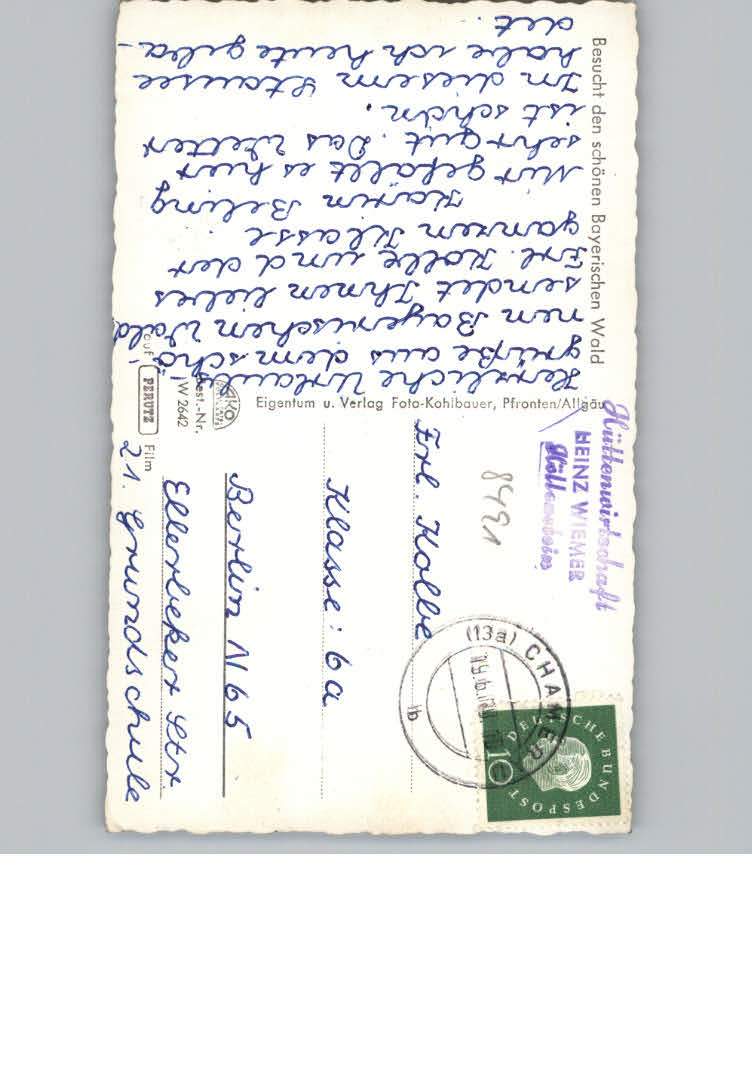 Besucht den schönen Bayerischen Wald
Herzliche Urlaubs
grüße aus dem schö
nen Bayerischen Wald
sendet Ihnen liebes
Frl. Kolbe und der
ganzen Klasse.
Karin Beling
Mir gefällt es hier
sehr gut. Das Wetter
ist schön.
Im diesem Stausee
habe ich heute geba-
det.
Eigentum u. Verlag Foto-Kohlbauer, Pfronten/Allgäu
Best.-Nr.
W 2642
auf PERUTZ Film
Hüttenwirtschaft
HEINZ WIEMER
8491
(13a) CHAMERAU
b
DEUTSCHE BUNDESPOST
10
Frl. Kolbe
Klasse: 6a
Berlin N 65
Ellerbeker Str.
21. Grundschule